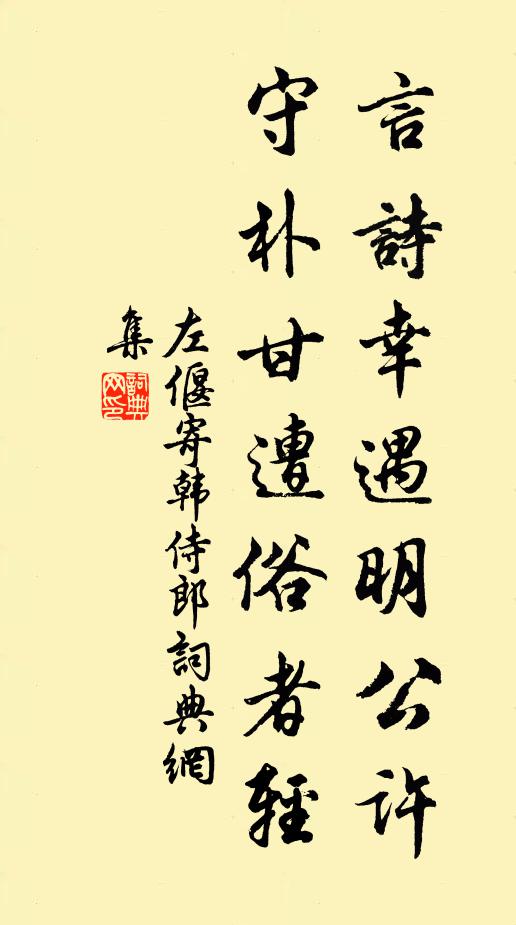 言詩幸遇明公許
守朴甘遭俗者輕
左偃寄韩侍郎詞典網
集
詞典
网印